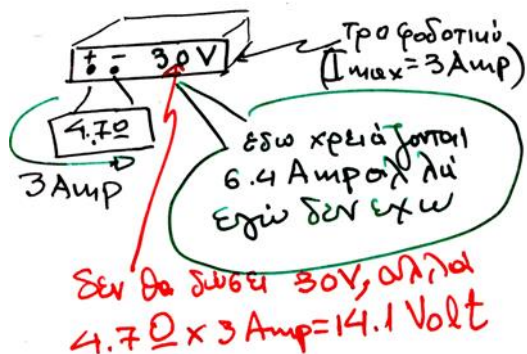 + - 30V
τροφοδοτικό
(Imax = 3 Amp)
4.7Ω
3 Amp
εδω χρειάζονται
6.4 Amp αλλά
εγώ δεν εχω
δεν θα δώσει 30V, αλλά
4.7Ω x 3 Amp = 14.1 Volt